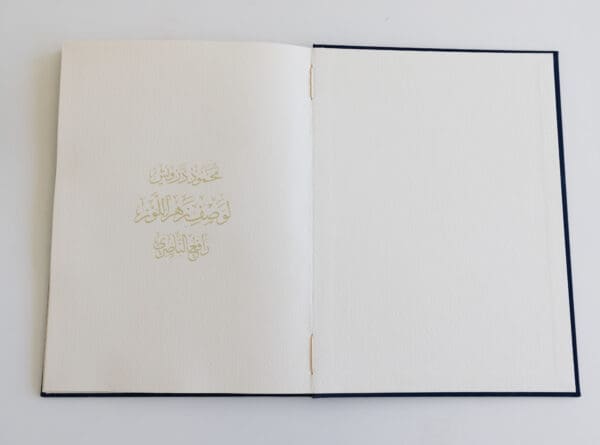 محمود درويش
لوصف زهر اللوز
رافع الناصري